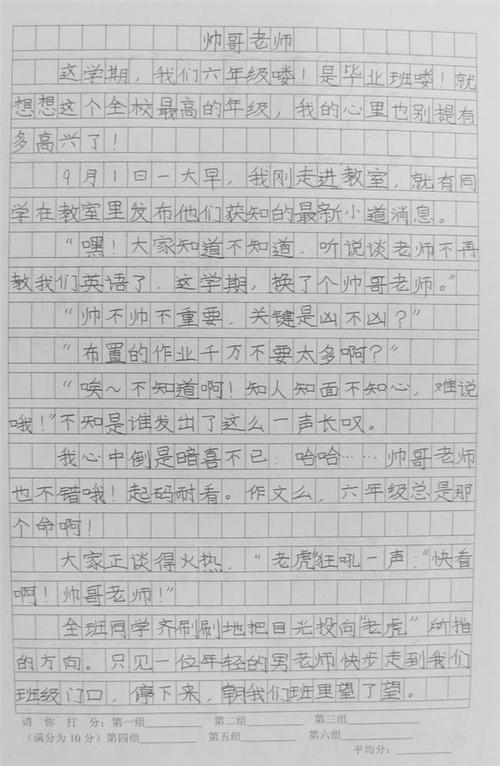 帅哥老师
这学期，我们六年级喽！是毕业班喽！就
想想这个全校最高的年级，我的心里也别提有
多高兴了！
9月1日一大早，我刚走进教室，就有同
学在教室里发布他们获知的最新小道消息。
“嘿！大家知道不知道，听说谈老师不再
教我们英语了，这学期，换了个帅哥老师。”
“帅不帅不重要，关键是凶不凶？”
“布置的作业千万不要太多啊？”
“唉～不知道啊！知人知面不知心，难说
哦！”不知是谁发出了这么一声长叹。
我心中倒是暗喜不已：哈哈……帅哥老师
也不错哦！起码耐看。作文么，六年级总是那
个命啊！
大家正谈得火热，“老虎狂吼一声：“快看
啊！帅哥老师！”
全班同学齐刷刷地把目光投向“老虎”所指
的方向。只见一位年轻的男老师快步走到我们
班级门口，停下来，朝我们班里望了望。
请 你 打 分：第一组________ 第二组________ 第三组________
（满分为10分）第四组________ 第五组________ 第六组________
平均分：________